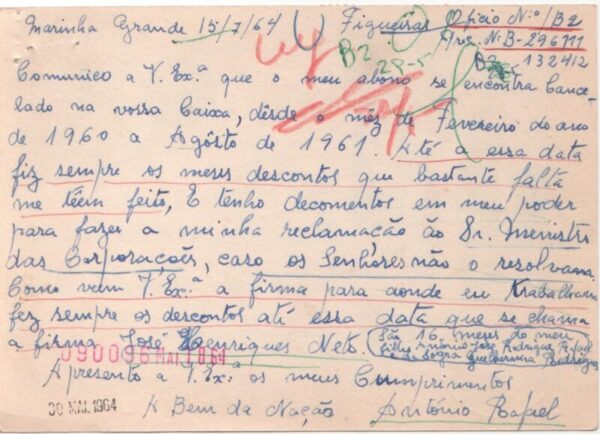 Marinha Grande 15/7/64 Figueiras Oficio N.º/B2
Arq. N.B-296111
B2 28-5
B2 132412
Comunico a V. Ex.ª que o meu abono se encontra cance-
lado na vossa Caixa, dêsde o mêz de Fevereiro do ano
de 1960 a Agôsto de 1961. Até a essa data
fiz sempre os meus descontos que bastante falta
me têem feito, E tenho decomentos em meu poder
para fazer a minha reclamação ão Sr. Menistro
das Corporações, caso os Senhores não o resolvam.
Como vem V. Ex.ª a firma para aonde eu trabalhava
fez sempre os descontos até essa data que se chama
a firma José Henriques Neto. (São 16 meses do meu
filho António José Rodrigues Rafael
e da Sogra Guilhermina Rodrigues
090096 MAI 18 64
Apresento a V. Ex.ª os meus Cumprimentos
30 MAI. 1964 A Bem da Nação António Rafael